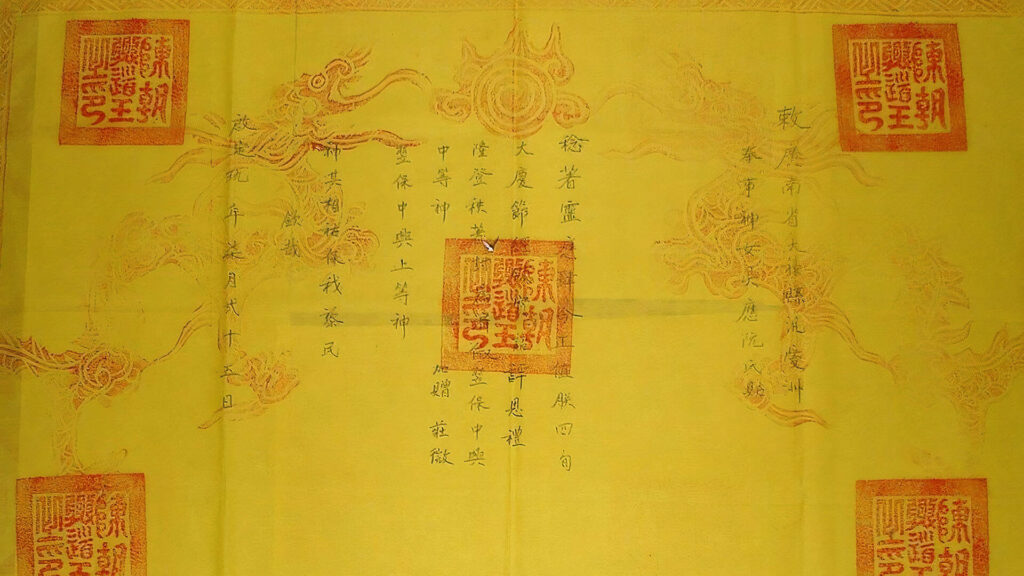 敕 廣南省大縣慶洲
奉事神女應阮氏
稔著靈肆今正值朕四旬
大慶節經恩禮
陞登秩著封為徽翌保中興
中等神 加贈莊徽
翌保中興上等神
神其相祐保我黎民
欽哉
啟定玖年柒月貳十五日
陳朝
興道王
之印
陳朝
興道王
之印
陳朝
興道王
之印
陳朝
興道王
之印
陳朝
興道王
之印